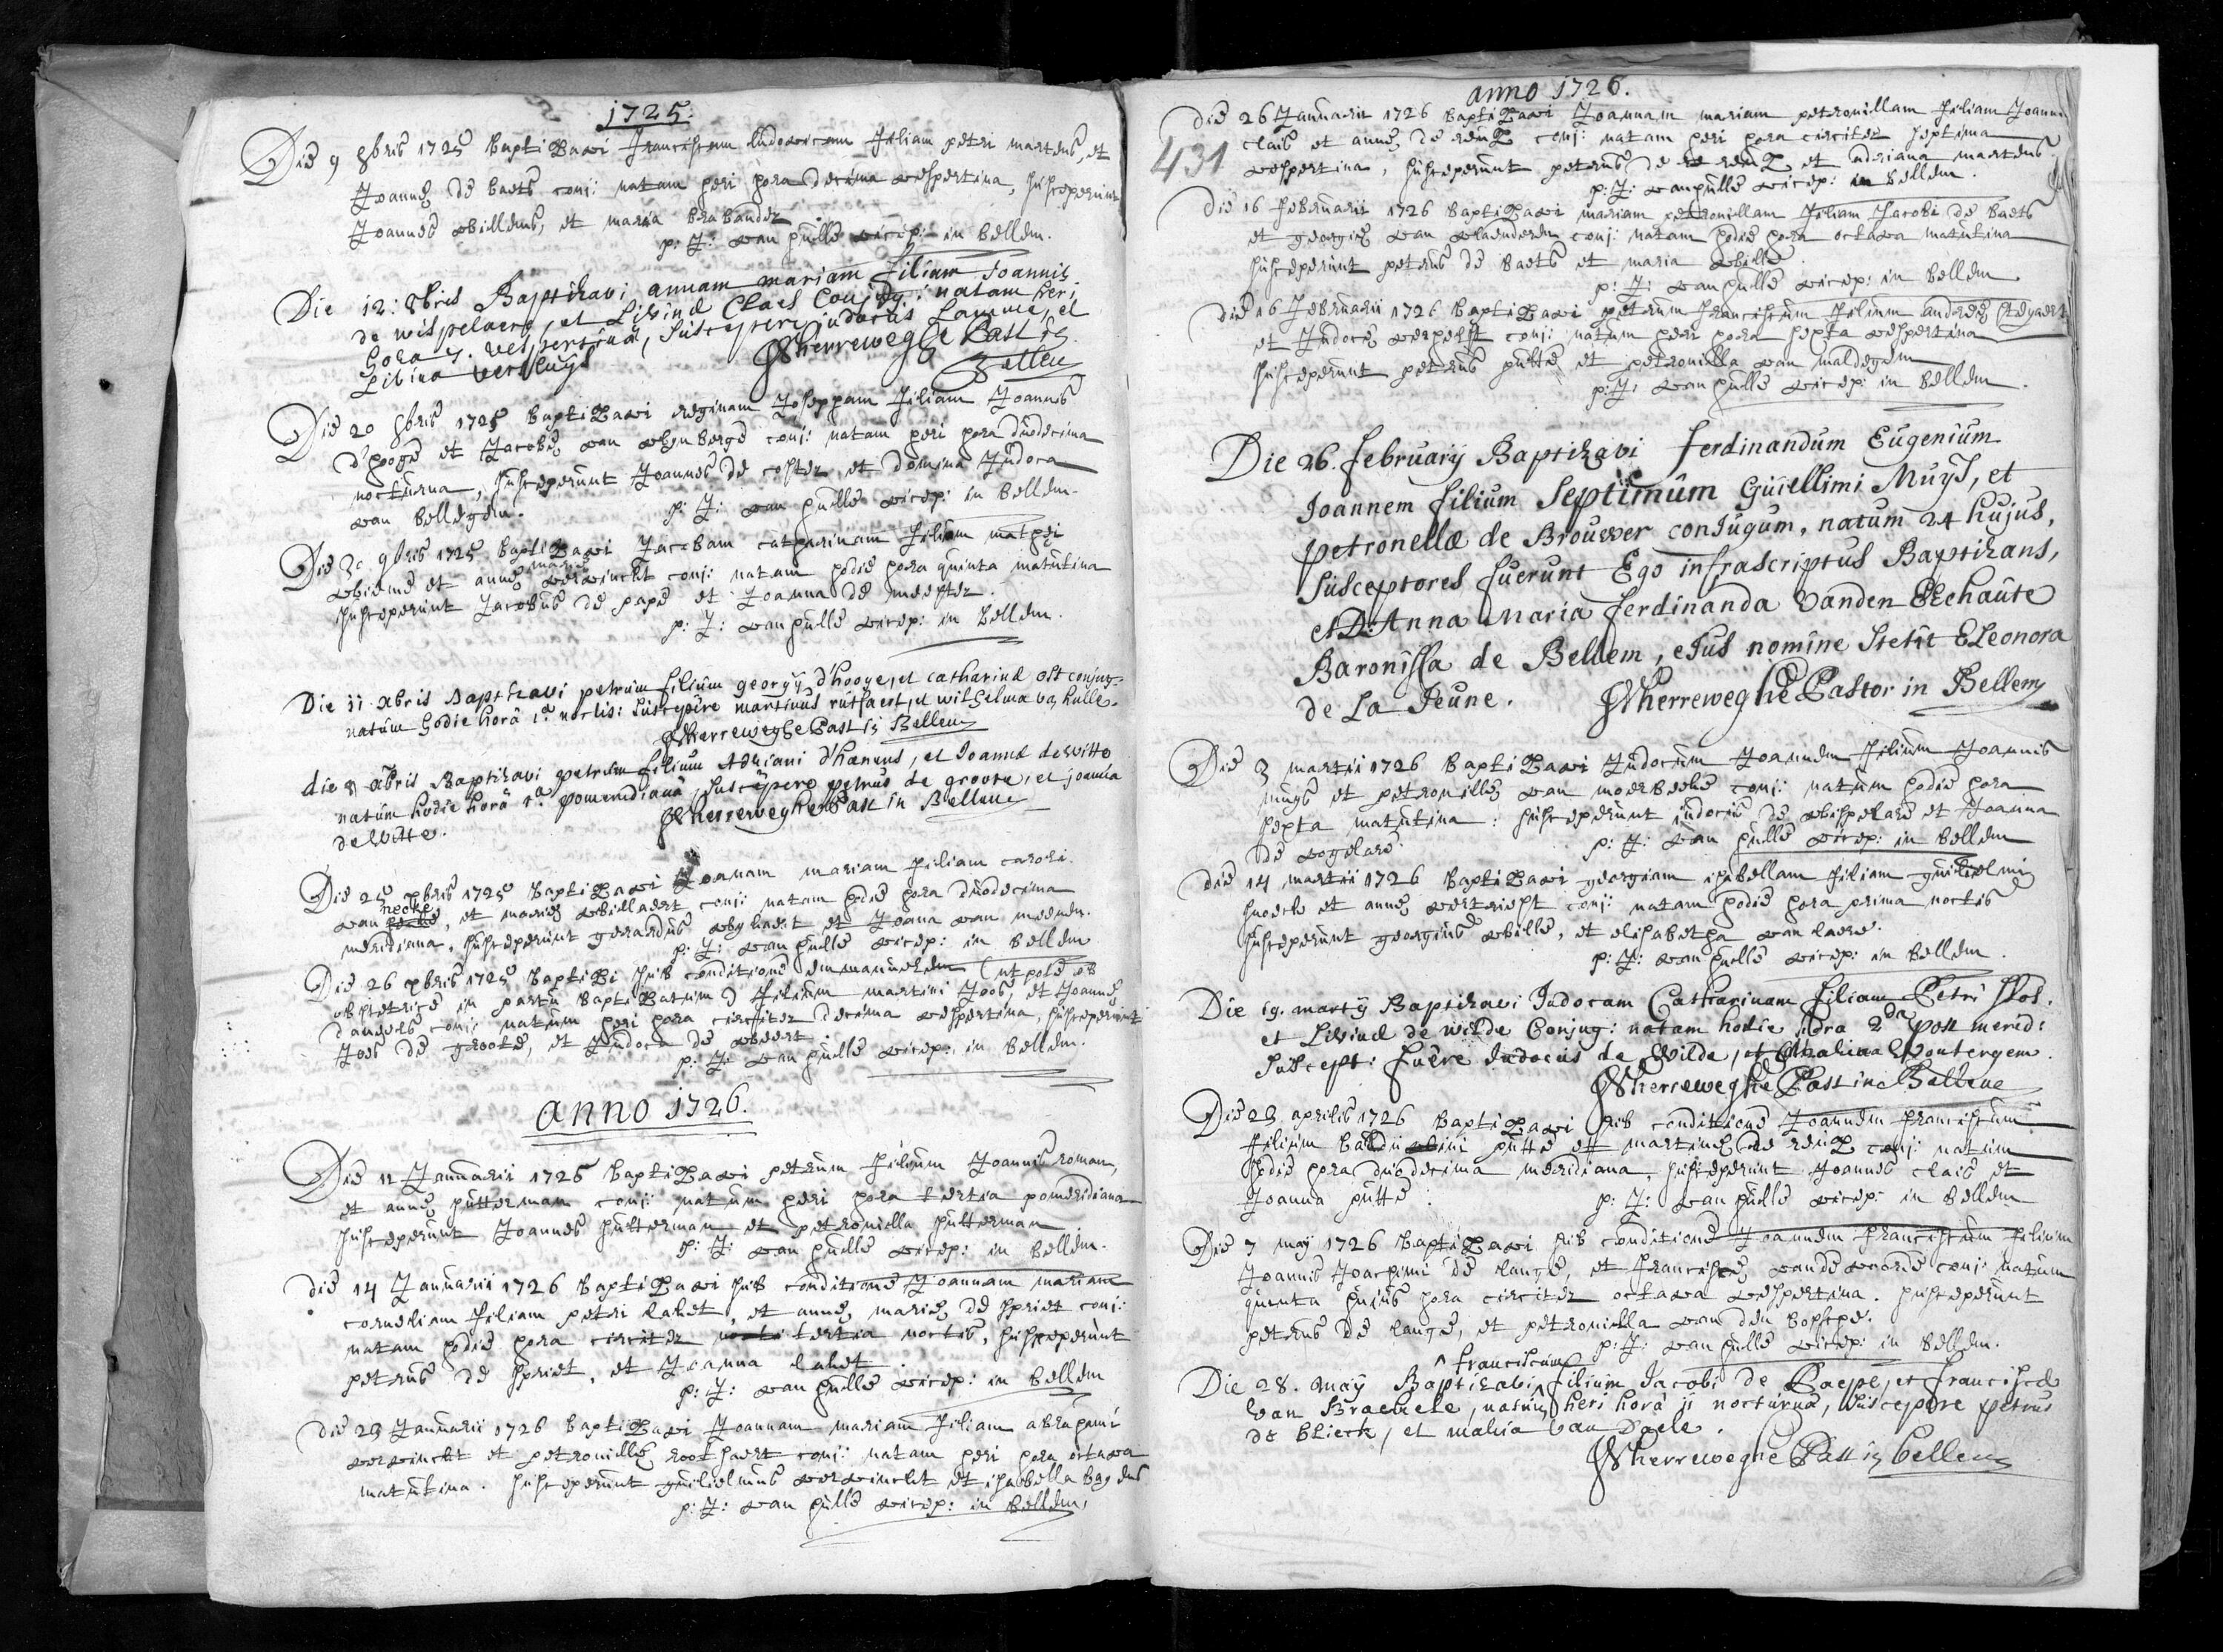 1725.
Die 9 8bris 1725 baptizavi franciscam ludovicam filiam petri martens, et
Joannæ de baets conj: natam heri hora decima vespertina, susceperunt
Joannes willems, et maria brabander
p: J: van hulle vicep: in bellem.
Die 12: 8bris Baptizavi annam mariam filiam Joannis
de wispelaere, et Livinæ Claes Conjug: natam heri
hora 7. vespertinâ, suscepere judocus Lamme, et
Livina versluys JVherreweghe Past in
Bellem
Die 20 8bris 1725 baptizavi reginam Josepham filiam Joannis
d'hooge et Jacobæ van wynberge conj: natam heri hora duodecima
nocturna, susceperunt Joannes de coster, et domina Judoca
van belleghem. p: J: van hulle vicep: in bellem.
Die 30 9bris 1725 baptizavi Jacobam catharinam filiam mathei
wieme et annæ mariæ verwinckt conj: natam hodie hora quinta matutina
susceperunt Jacobus de pape et Joanna de meester.
p: J: van hulle vicep: in bellem.
Die 11 xbris Baptizavi petrum filium georgij d'hooge, et catharinæ ost conjug:
natum hodie horâ 1.a noctis: suscepere martinus rutsaert, et wilhelma van hulle.
JVherreweghe Past in Bellem
die 21 xbris Baptizavi petrum filium Adriani d'haenens, et Joannæ de witte
natum hodie horâ 1.a pomeridianâ, suscepere petrus de groote, et joanna
de Witte. JVherreweghe Past in Bellem
Die 25 xbris 1725 baptizavi Joanam mariam filiam caroli
van hecke, et mariæ willaert conj: natam hodie hora duodecima
meridiana, susceperunt gerardus wykaert et Joana van meenen.
p: J: van hulle vicep: in bellem
Die 26 xbris 1725 baptizavi sub conditione emmanuelem (ut pote ab
obstetrice in partu baptizatum) filium martini Joos, et Joannæ
dandels conj: natum heri hora circiter decima vespertina, susceperunt
Joos de groote, et Judoca de weert.
p: J: van hulle vicep: in bellem.
anno 1726.
Die 11 Januarii 1726 baptizavi petrum filium Joannis roman,
et annæ putterman conj: natum heri hora tertia pomeridiana
susceperunt Joannes putterman et petronella putterman
p: J: van hulle vicep: in bellem.
Die 14 Januarii 1726 baptizavi sub conditione Joannam mariam
corneliam filiam petri laket, et annæ mariæ de spriet conj:
natam hodie hora circiter tertia noctis, susceperunt
petrus de spriet, et Joanna laket.
p: J: van hulle vicep: in bellem
Die 23 Januarii 1726 baptizavi Joannam mariam filiam abrahami
verwinckt et petronillæ rootsaert conj: natam heri hora octava
matutina. susceperunt guilielmus verwinckt et isabella baydens
p: J: van hulle vicep: in bellem,
anno 1726.
431
Die 26 Januarii 1726 baptizavi Joannam mariam petronillam filiam Joannis
clais et annæ de reuz conj: natam heri hora circiter septima
vespertina, susceperunt petrus de reuz et adriana martens
p: J: van hulle vicep: in bellem.
Die 16 februarii 1726 baptizavi mariam petronillam filiam Jacobi de baets
et georgiæ van vlaenderen conj: natam hodie hora octava matutina
susceperunt petrus de baets et maria wille.
p: J: van hulle vicep: in bellem
Die 16 februarii 1726 baptizavi petrum franciscum filium andreæ steyaert
et Judocæ verhelst conj: natum heri hora sexta vespertina
susceperunt petrus putte et petronilla van maldegem
p: J: van hulle vicep: in bellem.
Die 26. february Baptizavi ferdinandum Eugenium
Joannem filium Septimum Guillelmi Muys, et
petronellæ de Brouwer conjugum, natum 24 hujus,
susceptores fuerunt Ego infrascriptus Baptizans,
et D: Anna Maria ferdinanda Vanden Eechaute
Baronissa de Bellem, ejus nomine stetit Eleonora
de La Jeune. JVherreweghe Pastor in Bellem
Die 3 martii 1726 baptizavi Judocum Joannem filium Joannis
muys et petronillæ van moerbeeke conj: natum hodie hora
sexta matutina: susceperunt judocus de wispelare et Joanna
de vogelare. p: J: van hulle vicep: in bellem
Die 14 martii 1726 baptizavi georgiam isabellam filiam guilielmi
snoeck et annæ verriest conj: natam hodie hora prima noctis
susceperunt georgius wille, et elisabetha van laere.
p: J: van hulle vicep: in bellem.
Die 19. martij Baptizavi Judocam Catharinam filiam Petri Stos.
et Livinæ de wilde Conjug: natam hodie hora 2da post merid:
suscept: fuere Judocus de Wilde, et Wontergem.
JVherreweghe Past in Bellem
Die 23 aprilis 1726 baptizavi sub conditione Joannem franciscum
filium balduini putte et martinæ de reuz conj: natum
hodie hora duodecima meridiana, susceperunt Joannes clais et
Joanna putte. p: J: van hulle vicep: in bellem
Die 7 may 1726 baptizavi sub conditione Joannem franciscum filium
Joannis Joachimi de lange, et franciscæ vande voorde conj: natum
quinta hujus hora circiter octava vespertina. susceperunt
petrus de lange, et petronilla van den bossche.
p: J: van hulle vicep: in bellem.
Die 28. may Baptizavi franciscum filium Jacobi de Paepe, et franciscæ
Van Braekele, natum heri horâ 11 nocturnâ, suscepere petrus
de blieck, et maria Van Daele.
JVherreweghe Past in bellem